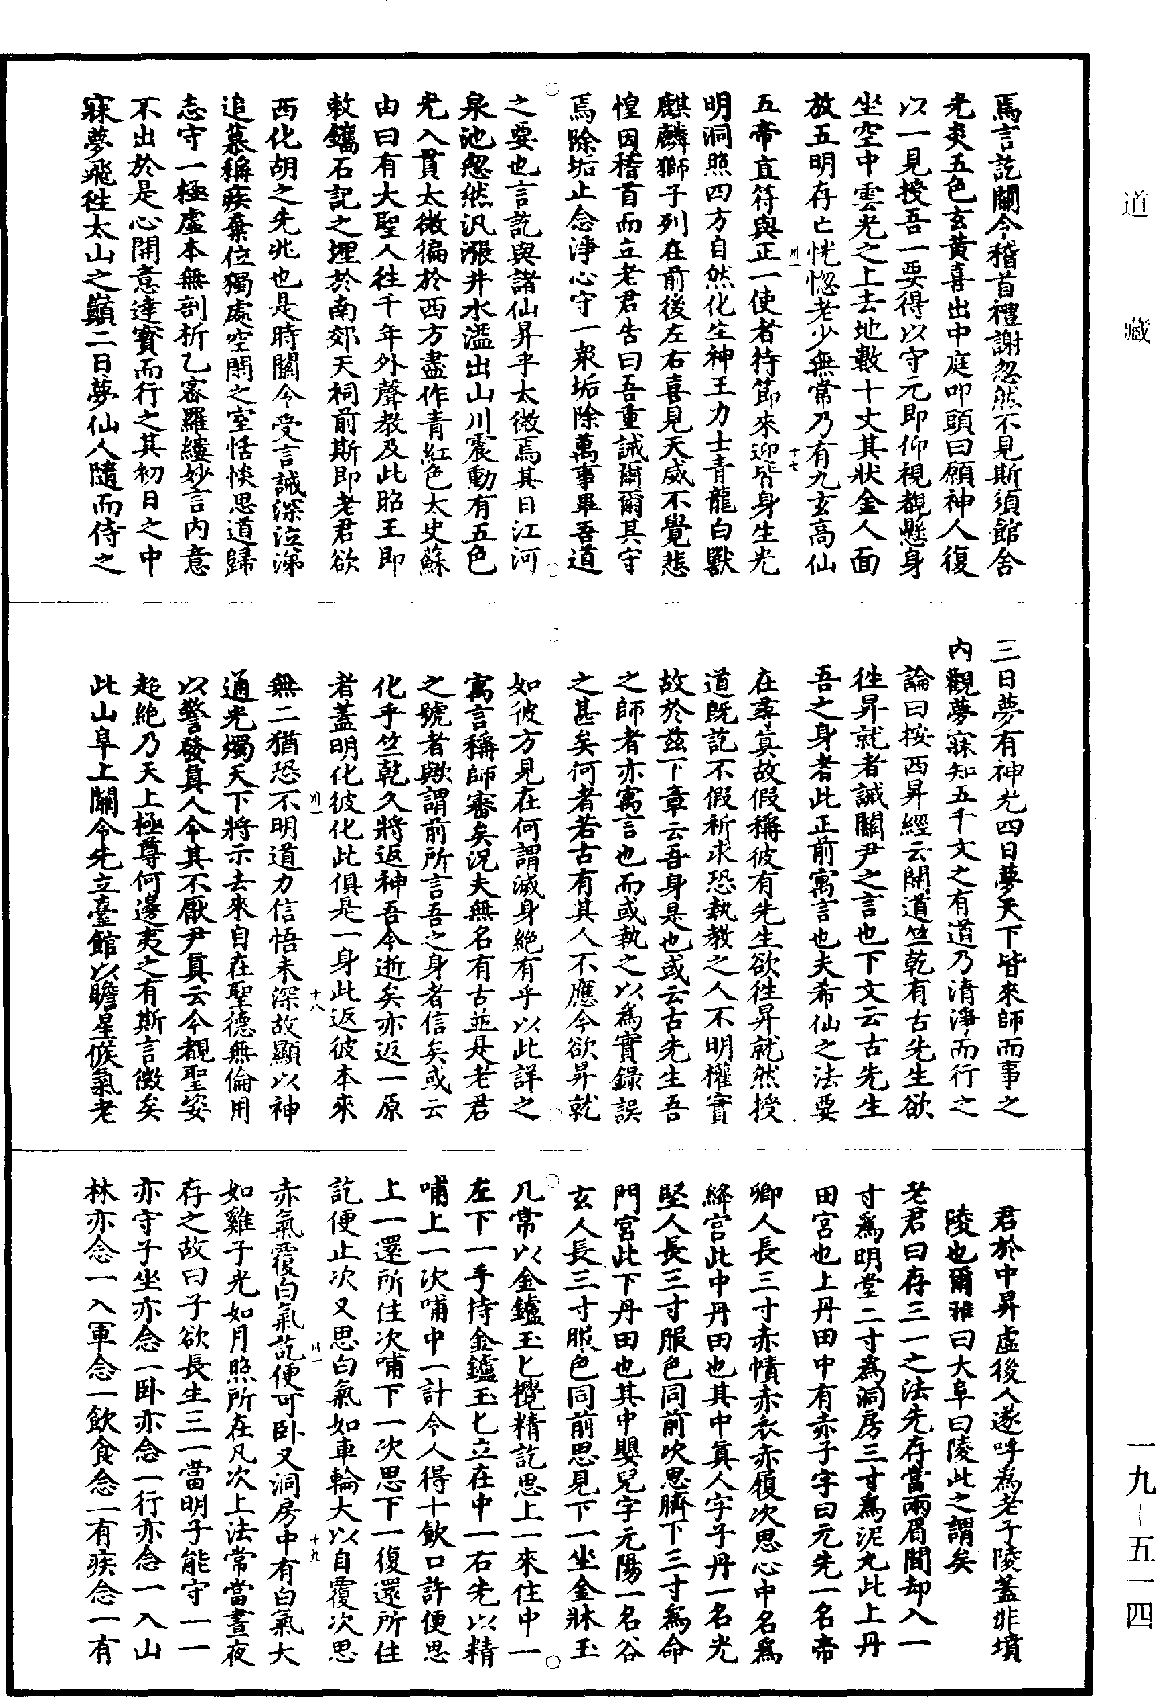 道藏
一九—五一四
焉言訖關令稽首禮謝忽然不見斯須館舍
光炎五色玄黃喜出中庭叩頭曰願神人復
以一見授吾一要得以守元即仰視覩懸身
坐空中雲光之上去地數十丈其狀金人面
放五明存亡恍惚老少無常乃有九玄高仙
五帝直符與正一使者持節來迎皆身生光
明洞照四方自然化生神王力士青龍白獸
麒麟獅子列在前後左右喜見天威不覺悲
惶因稽首而立老君告曰吾重誡爾爾其守
焉除垢止念淨心守一衆垢除萬事畢吾道
之要也言訖與諸仙昇乎太微焉其日江河
泉池忽然汎漲井水溢出山川震動有五色
光入貫太微徧於西方盡作青紅色太史蘇
由曰有大聖人往千年外聲教及此昭王即
敕鐫石記之埋於南郊天祠前斯即老君欲
西化胡之先兆也是時關令受言誡深泣涕
追慕稱疾棄位獨處空閑之室恬惔思道歸
志守一極虛本無剖析乙密羅縷妙言內意
不出於是心開意達實而行之其初日之中
寐夢飛徃太山之巔二日夢仙人隨而侍之
三日夢有神光四日夢天下皆來師而事之
內觀夢寐知五千文之有道乃清淨而行之
論曰按西昇經云開道竺乾有古先生欲
徃昇就者誠關尹之言也下文云古先生
吾之身者此正前寓言也夫希仙之法要
在尋真故假稱彼有先生欲徃昇就然授
道既訖不假祈求恐執教之人不明權實
故於茲下章云吾身是也或云古先生吾
之師者亦寓言也而或執之以爲實錄誤
之甚矣何者若古有其人不應今欲昇就
如彼方見在何謂滅身絶有乎以此詳之
寓言稱師審矣況夫無名有古並是老君
之號者歟謂前所言吾之身者信矣或云
化乎竺乾久將返神吾今逝矣亦返一原
者蓋明化彼化此俱是一身此返彼本來
無二猶恐不明道力信悟未深故顯以神
通光燭天下將示去來自在聖德無倫用
以警發真人令其不厭尹真云今覩聖姿
超絶乃天上極尊何邊夷之有斯言徵矣
此山阜上關令先立臺館以瞻星候氣老
君於中昇虛後人遂呼為老子陵蓋非墳
陵也爾雅曰大阜曰陵此之謂矣
老君曰存三一之法先存當兩眉間却入一
寸爲明堂二寸為洞房三寸爲泥丸此上丹
田宮也上丹田中有赤子字曰元先一名帝
卿人長三寸赤幘赤衣赤履次思心中名爲
絳宮此中丹田也其中真人字子丹一名光
堅人長三寸服色同前次思臍下三寸爲命
門宮此下丹田也其中嬰兒字元陽一名谷
玄人長三寸服色同前思見下一坐金牀玉
几常以金鑪玉匕攪精訖思上一來住中一
左下一手持金鑪玉匕立在中一右先以精
哺上一次哺中一計今人得十飲口許便思
上一還所住次哺下一次思下一復還所住
訖便止次又思白氣如車輪大以自覆次思
赤氣覆白氣訖便可卧又洞房中有白氣大
如雞子光如月照所在凡次上法常當晝夜
存之故曰子欲長生三一當明子能守一一
亦守子坐亦念一卧亦念一行亦念一入山
林亦念一入軍念一飲食念一有疾念一有
川一
十七
川一
十八
川一
十九